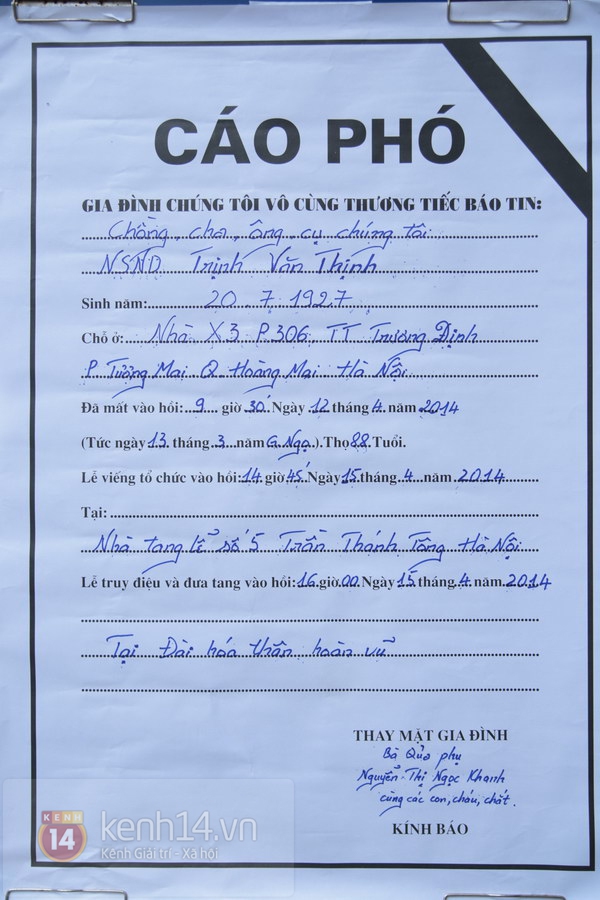 CÁO PHÓ
GIA ĐÌNH CHÚNG TÔI VÔ CÙNG THƯƠNG TIẾC BÁO TIN:
Chồng, cha, ông, cụ chúng tôi
NSND Trịnh Văn Thịnh
Sinh năm: 20.7.1927
Chỗ ở: Nhà X3 P.306 TT Trương Định
P. Tương Mai Q. Hoàng Mai Hà Nội
Đã mất vào hồi: 9 giờ 30' Ngày 12 tháng 4 năm 2014
(Tức ngày 13 tháng 3 năm G.Ngọ). Thọ 88 Tuổi.
Lễ viếng tổ chức vào hồi: 14 giờ 45' Ngày 15 tháng 4 năm 2014
Tại:
Nhà tang lễ số 5 Trần Thánh Tông Hà Nội
Lễ truy điệu và đưa tang vào hồi: 16 giờ 00 Ngày 15 tháng 4 năm 2014
Tại Đài hóa thân hoàn vũ
THAY MẶT GIA ĐÌNH
Bà Qủa phụ
Nguyễn Thị Ngọc Khanh
cùng các con, cháu, chắt.
KÍNH BÁO
KENH 14 kenh14.vn
Kênh Giải trí - Xã hội